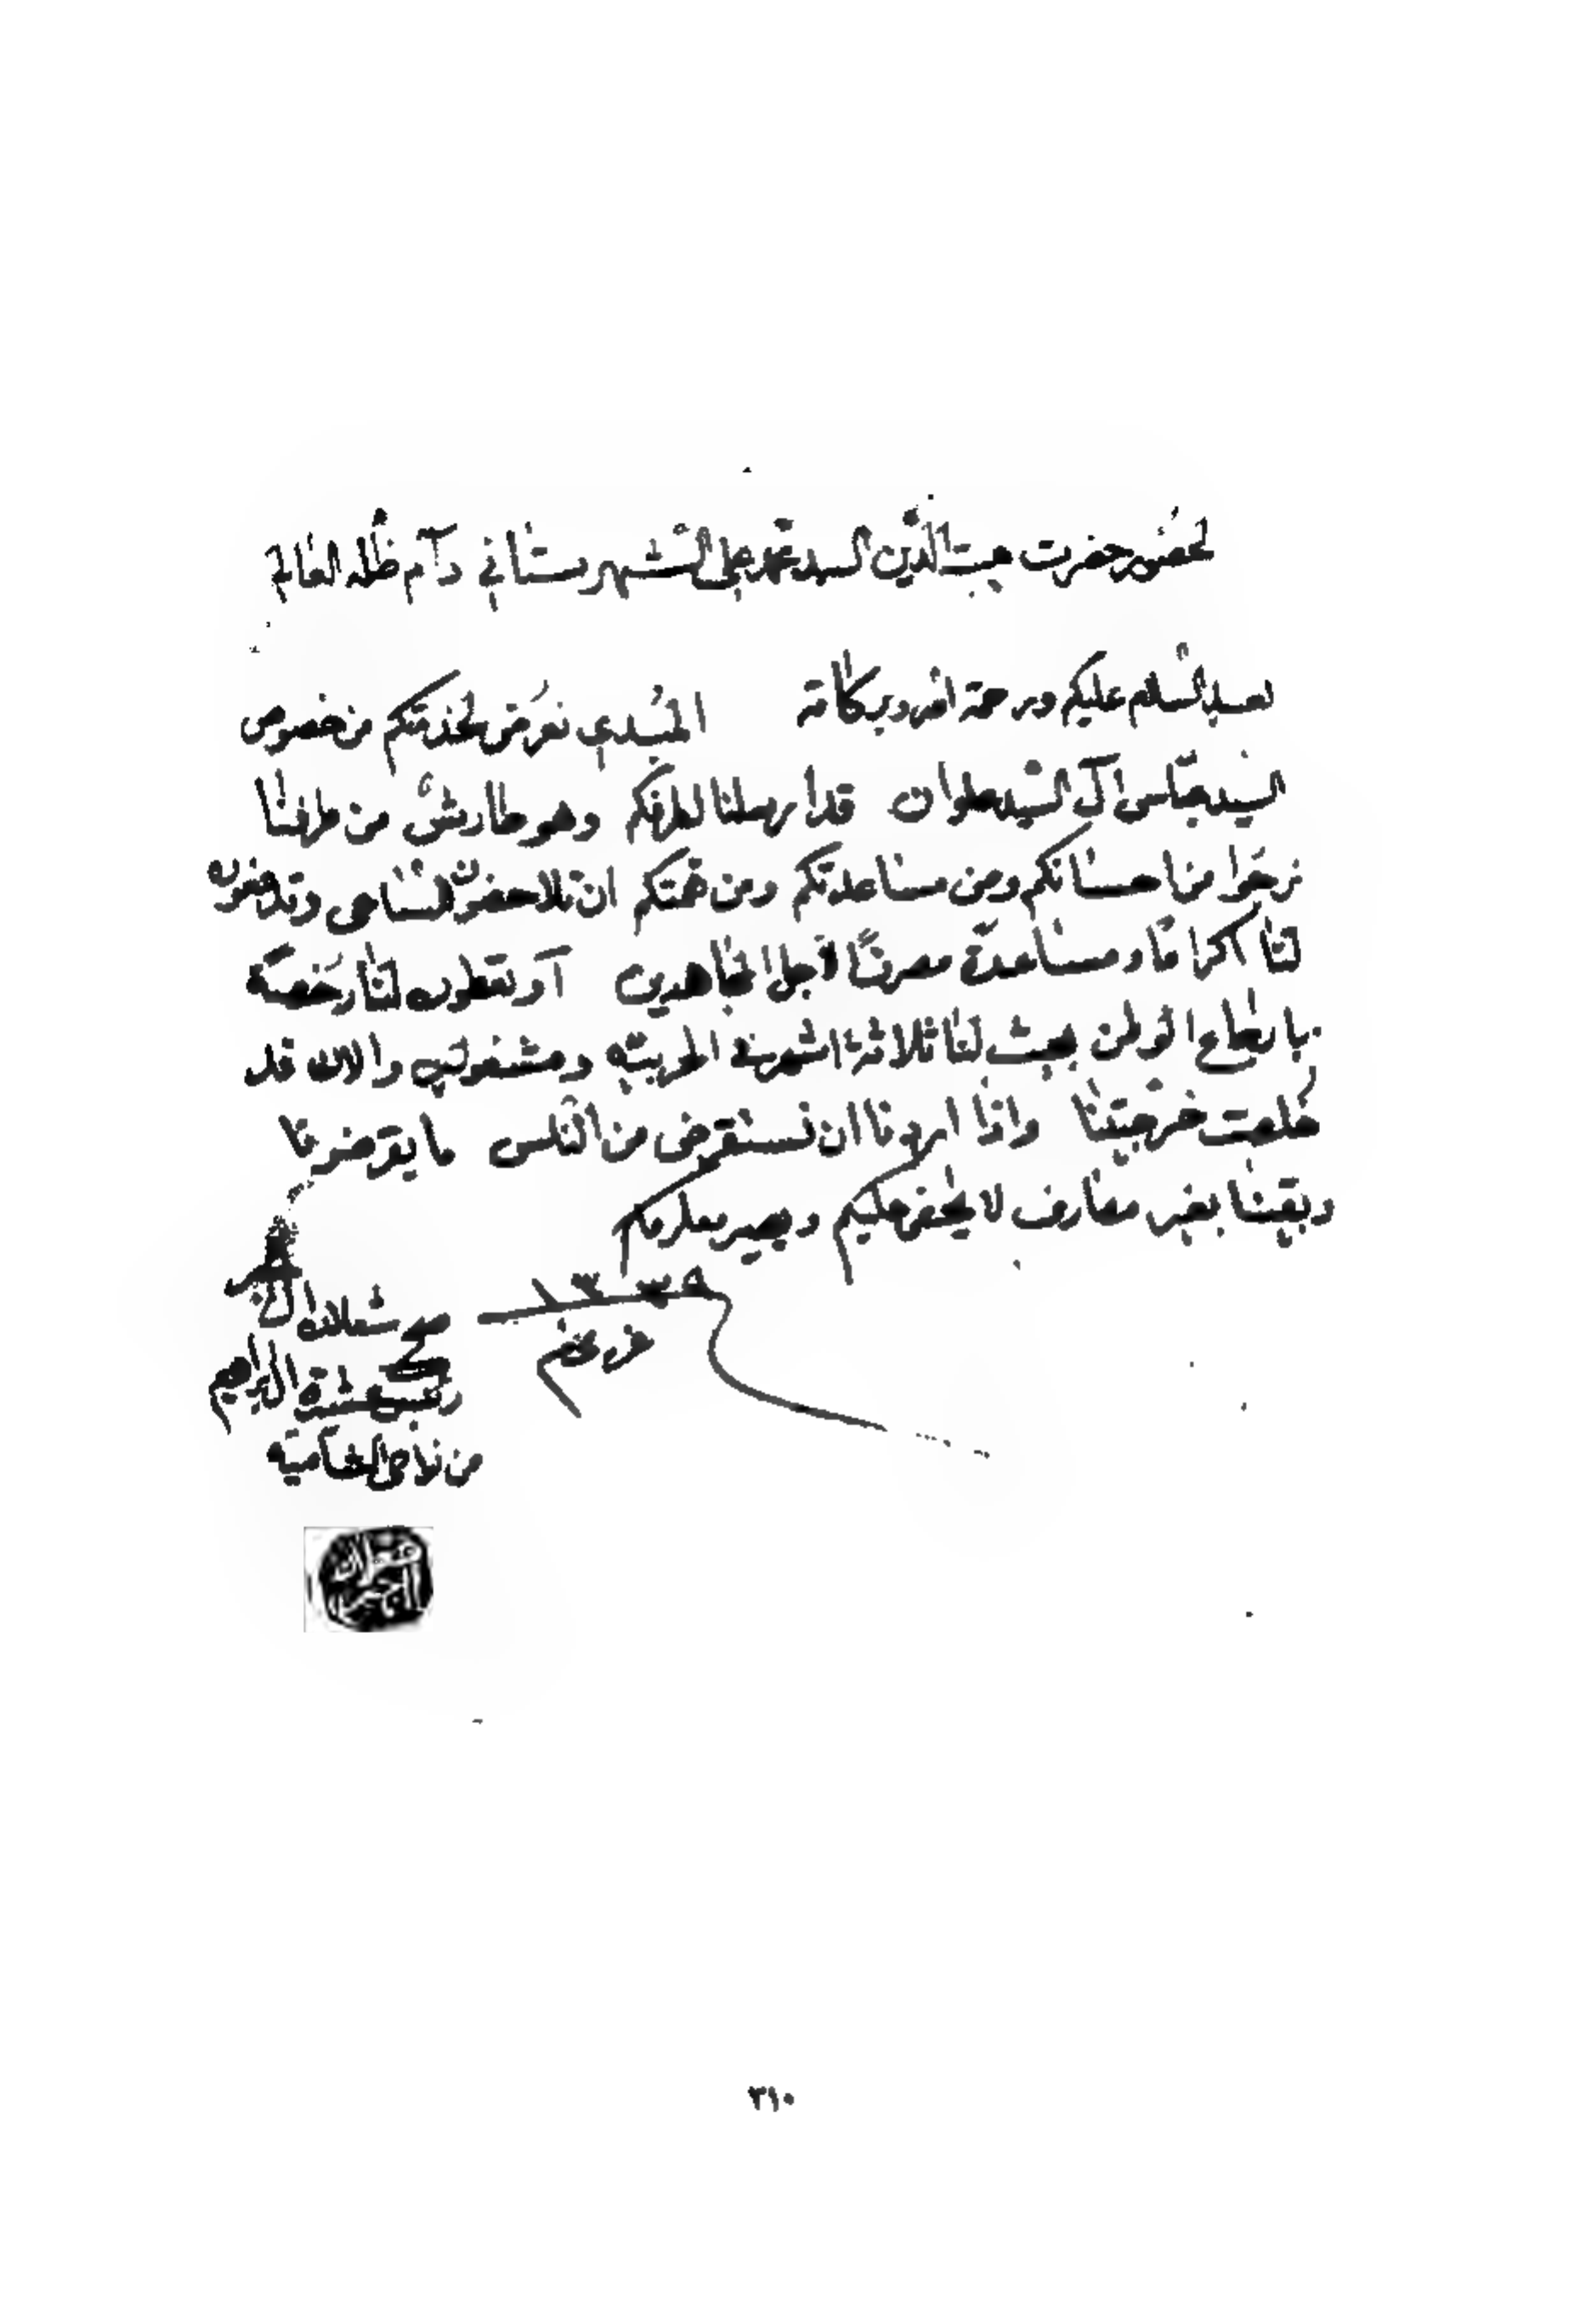 لحضور حضرت هبت الدّين السيد محمد علي الشهرستاني دآم ظله العالي
بعد السّلام عليكم ورحمة الله وبركاته المبدي نعرض لخدمتكم من خصوص
السيد عباس آل السيد علوان قد ارسلنا لطرفكم وهو طارش من طرفنا
نرجوا من احسانكم ومن مساعدتكم ومن همتكم ان تلاحضون
لنا اكراما ومساعدة مصرفًا لاجل المجاهدين آو تعطون لنا رخصة
بارجاع الوطن بحيث لنا ثلاثة اشهر في الحربيه ومشغولين والان قد
خلصت خرجيتنا واذا اردونا ان نستقرض من الناس ما يقرضونا
وبقينا بغير مصارف لا يخفى عليكم ويصير معلومكم
١٣٣٨
شعلان
صح
رئيس عشيرة ال ابراهيم
من نواحي الشاميه
٣١٠